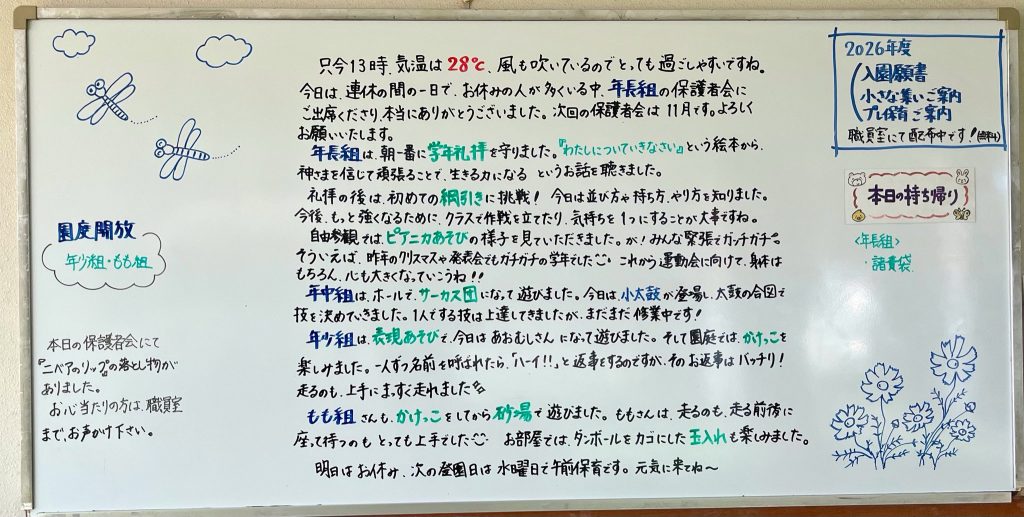 只今13時、気温は28℃、風も吹いているのでとっても過ごしやすいですね。
今日は、連休の間の一日で、お休みの人が多くいる中、年長組の保護者会に
ご出席くださり、本当にありがとうございました。次回の保護者会は11月です。よろしく
お願いいたします。
年長組は、朝一番に学年礼拝を守りました。『わたしについていきなさい』という絵本から、
神さまを信じて頑張ることで、生きる力になる というお話を聴きました。
礼拝の後は、初めての綱引きに挑戦！ 今日は並び方や持ち方、やり方を知りました。
今後、もっと強くなるために、クラスで作戦を立てたり、気持ちを1つにすることが大事ですね。
自由参観では、ピアニカあそびの様子を見ていただきました。が！みんな緊張でガッチガチ。
そういえば、昨年のクリスマスや発表会でもガチガチの学年でした これから運動会に向けて、身体は
もちろん、心も大きくなっていこうね！！
年中組は、ホールで、サーカス団になって遊びました。今日は、小太鼓が登場し、太鼓の合図で
技を決めていきました。1人でする技は上達してきたが、まだまだ修業中です！
年少組は、表現あそびで、今日はあおむしさんになって遊びました。そして園庭では、かけっこを
楽しみました。一人ずつ名前を呼ばれたら、「ハーイ！！」と返事をするのですが、そのお返事はバッチリ！
走るのも、上手にまっすぐ走れました
もも組さんも、かけっこをしてから砂場で遊びました。ももさんは、走るのも、走る前後に
座って待つのもとっても上手でした お部屋では、ダンボールをカゴにした玉入れも楽しみました。
明日はお休み、次の登園日は水曜日で午前保育です。元気に来てね〜
園庭開放
年少組・もも組
本日の保護者会にて
『ニベアのリップ』の落とし物が
ありました。
お心当たりの方は、職員室
まで、お声かけ下さい。
2026年度
入園願書
小さな集いご案内
プレ保育ご案内
職員室にて配布中です！(無料)
本日の持ち帰り
<年長組>
・諸費袋